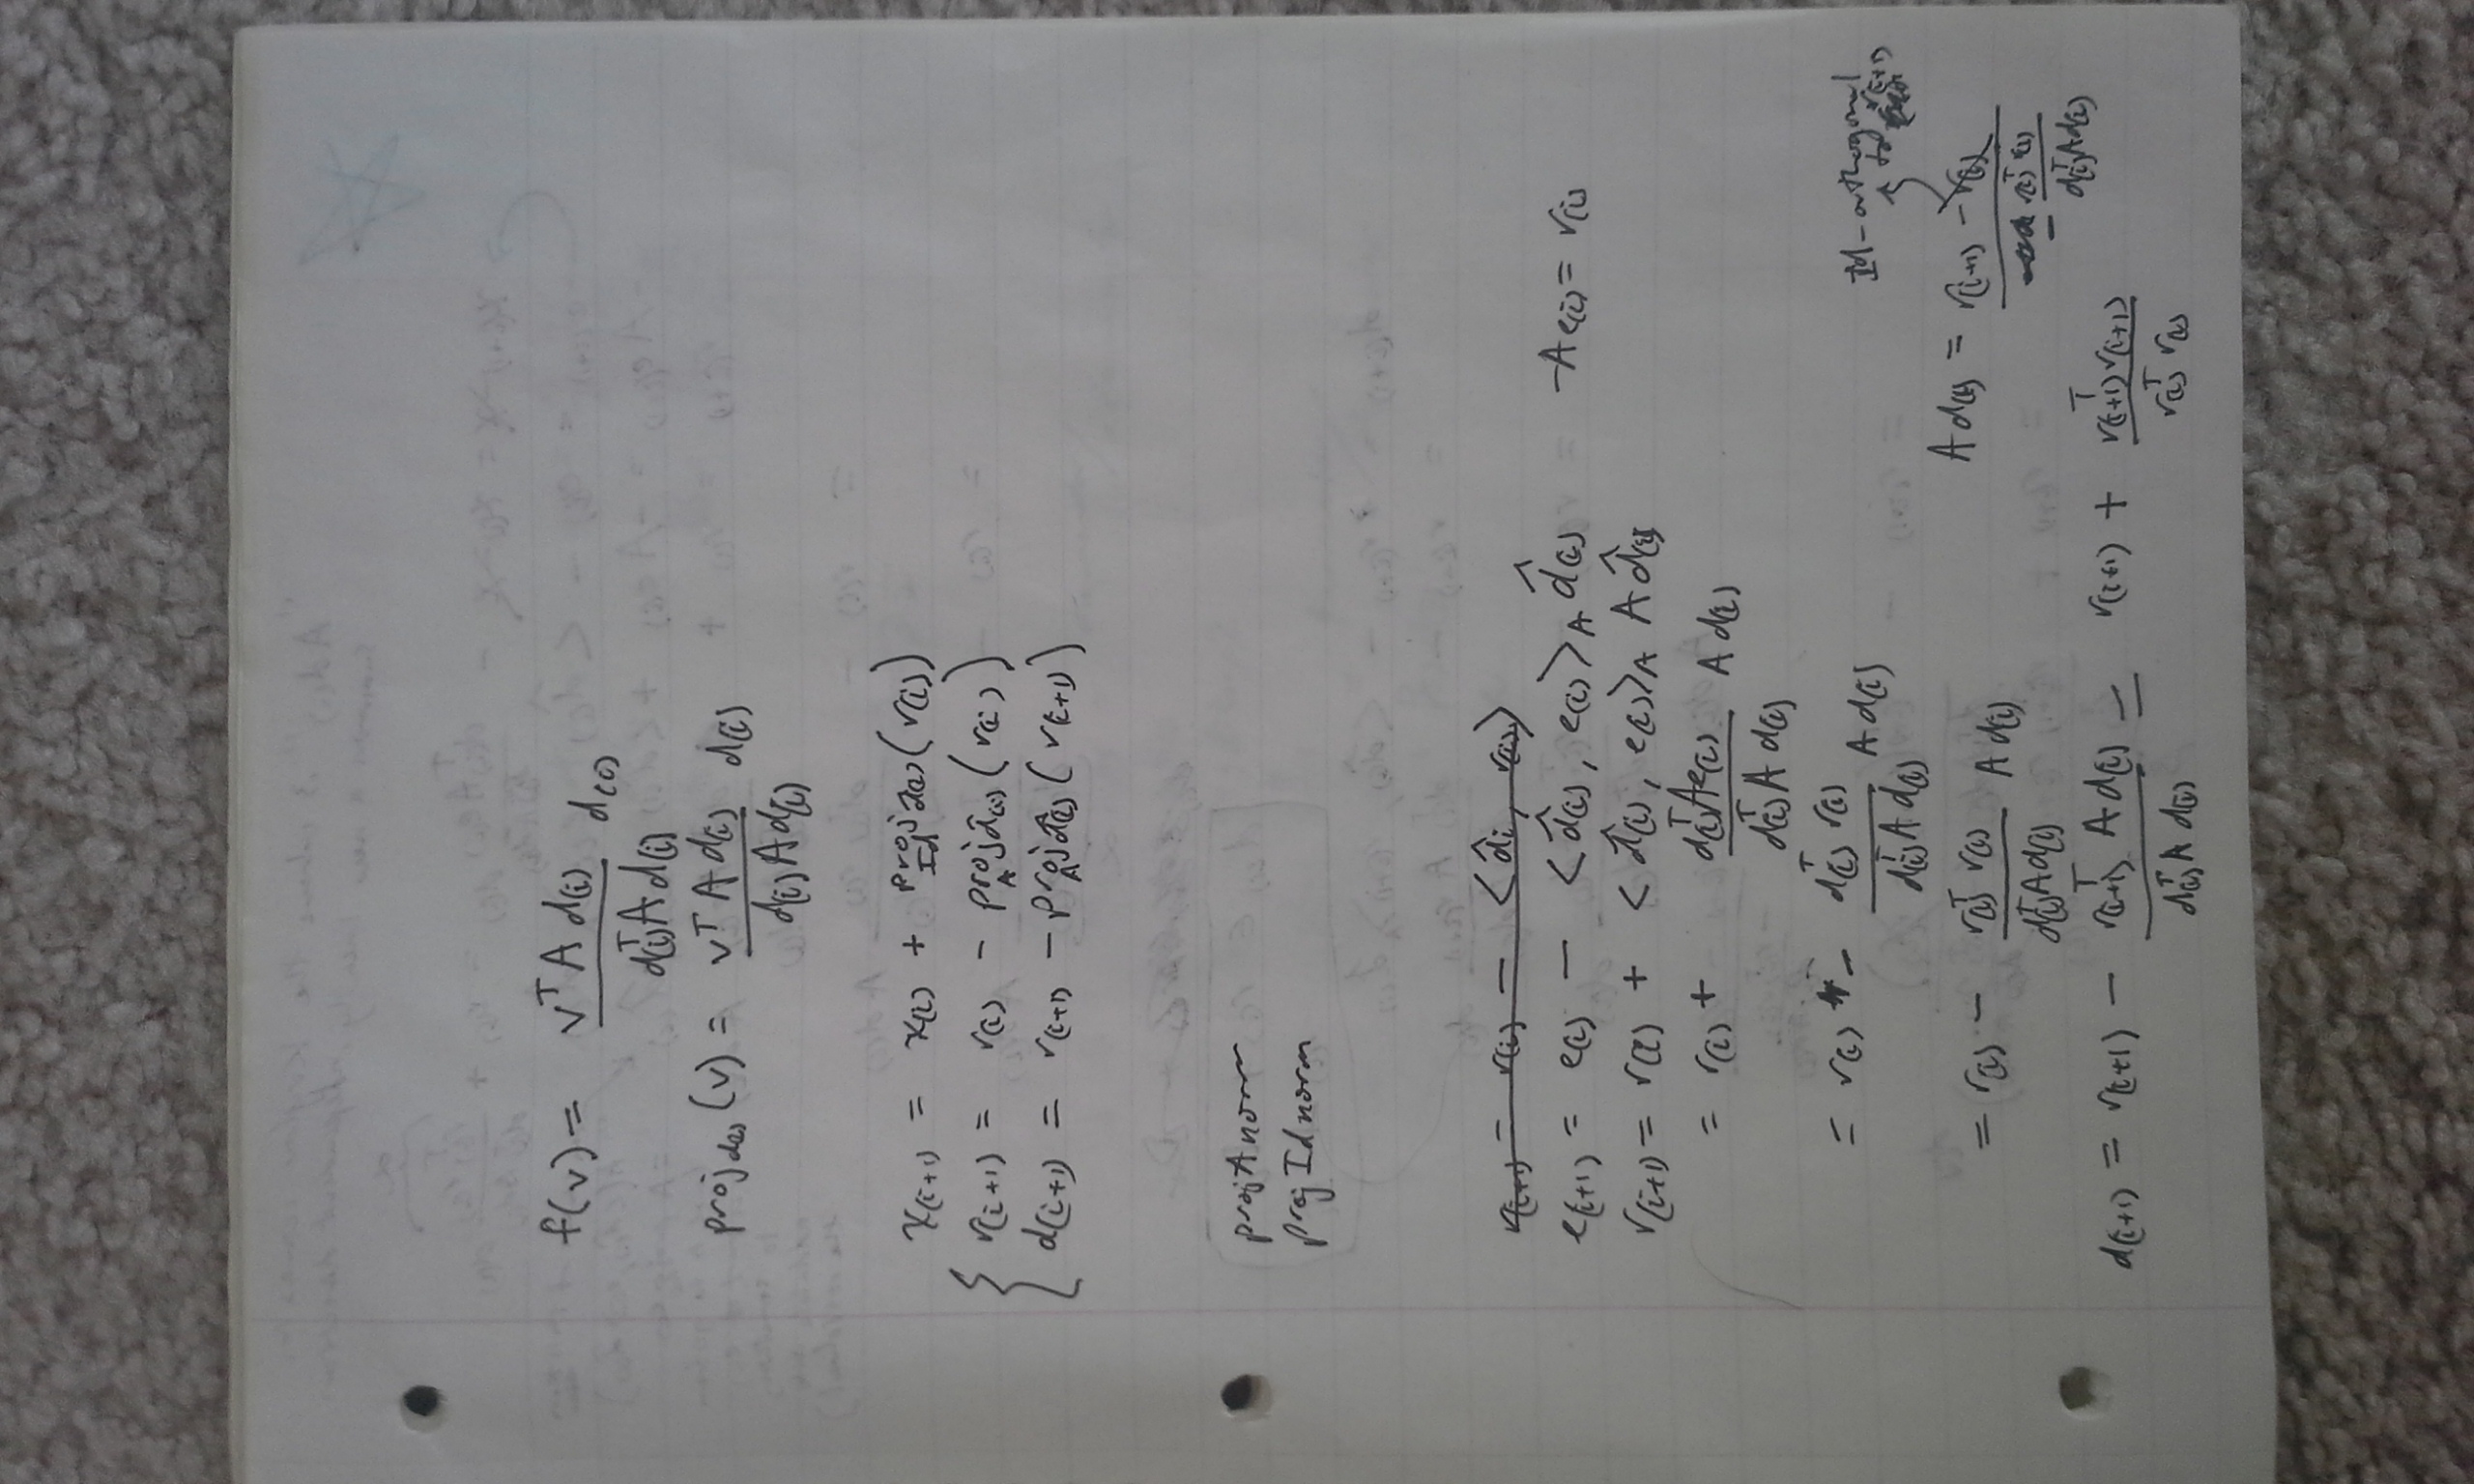 f(v) = \frac{v^T A d_{(i)}}{d_{(i)}^T A d_{(i)}} d_{(i)}
proj_{d_{(i)}}(v) = \frac{v^T A d_{(i)}}{d_{(i)} A d_{(i)}} d_{(i)}
x_{(i+1)} = x_{(i)} + proj_{Id} d_{(i)} (r_{(i)})
r_{(i+1)} = r_{(i)} - proj_A \hat{d}_{(i)} (r_{(i)})
d_{(i+1)} = r_{(i+1)} - proj_A \hat{d}_{(i)} (r_{(i+1)})
proj A norm
proj Id norm
r_{(i+1)} = r_{(i)} - < \hat{d}_i, r_{(i)} >
e_{(i+1)} = e_{(i)} - < \hat{d}_{(i)}, e_{(i)} >_A \hat{d}_{(i)} -A e_{(i)} = r_{(i)}
r_{(i+1)} = r_{(i)} + < \hat{d}_{(i)}, e_{(i)} >_A A \hat{d}_{(i)}
= r_{(i)} + \frac{d_{(i)}^T A e_{(i)}}{d_{(i)}^T A d_{(i)}} A d_{(i)}
= r_{(i)} - \frac{d_{(i)}^T r_{(i)}}{d_{(i)}^T A d_{(i)}} A d_{(i)}
Id-orthogonal
to r_{(i+1)}
= r_{(i)} - \frac{r_{(i)}^T r_{(i)}}{d_{(i)}^T A d_{(i)}} A d_{(i)}
A d_{(i)} = \frac{r_{(i+1)} - r_{(i)}}{- \frac{r_{(i)}^T r_{(i)}}{d_{(i)}^T A d_{(i)}}}
d_{(i+1)} = r_{(i+1)} - \frac{r_{(i+1)}^T A d_{(i)}}{d_{(i)}^T A d_{(i)}} = r_{(i+1)} + \frac{r_{(i+1)}^T r_{(i+1)}}{r_{(i)}^T r_{(i)}}